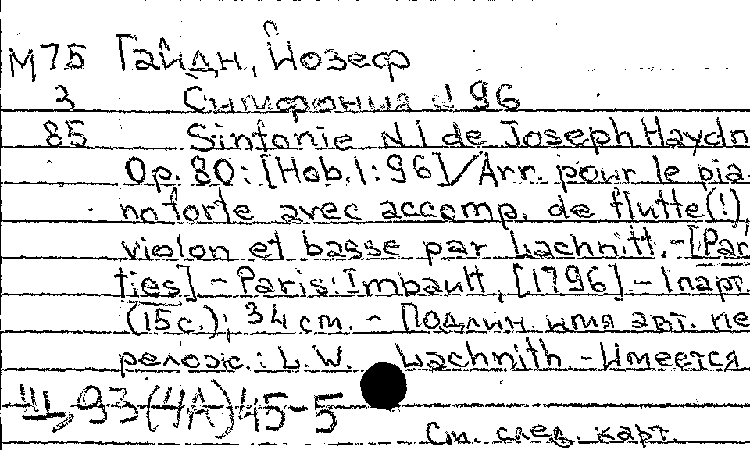 М75 Гайдн, Йозеф
3 Симфония N 96
85 Sinfonie N 1 de Joseph Haydn
Op. 80: [Hob. I: 96] / Arr. pour le pia-
no forte avec accomp. de flutte(!),
violon et basse par Lachnitt. - [Par
ties] - Paris: Imbault, [1796] - 1 парт.
(15 с.); 34 cm. - Подлин. имя авт. пе
релож.: L. W. Lachnith - Имеется
III, 93(4A)45-5
См. след. карт.